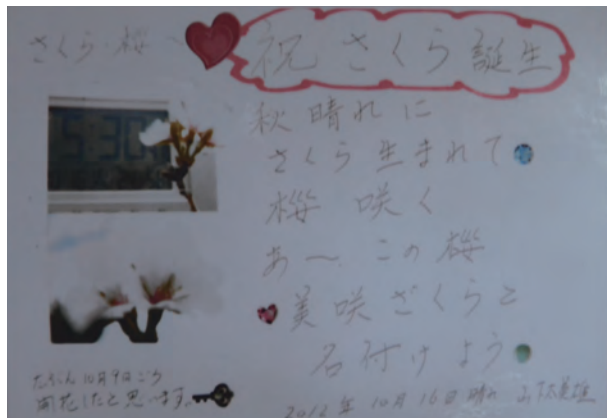 さくら・桜
祝 さくら誕生
秋晴れに
さくら生まれて
桜 咲く
あ〜この桜
美咲ざくらと
名付けよう
5:30
たぶん10月9日ごろ
開花したと思います。
2012年10月16日 晴れ 山下美雄